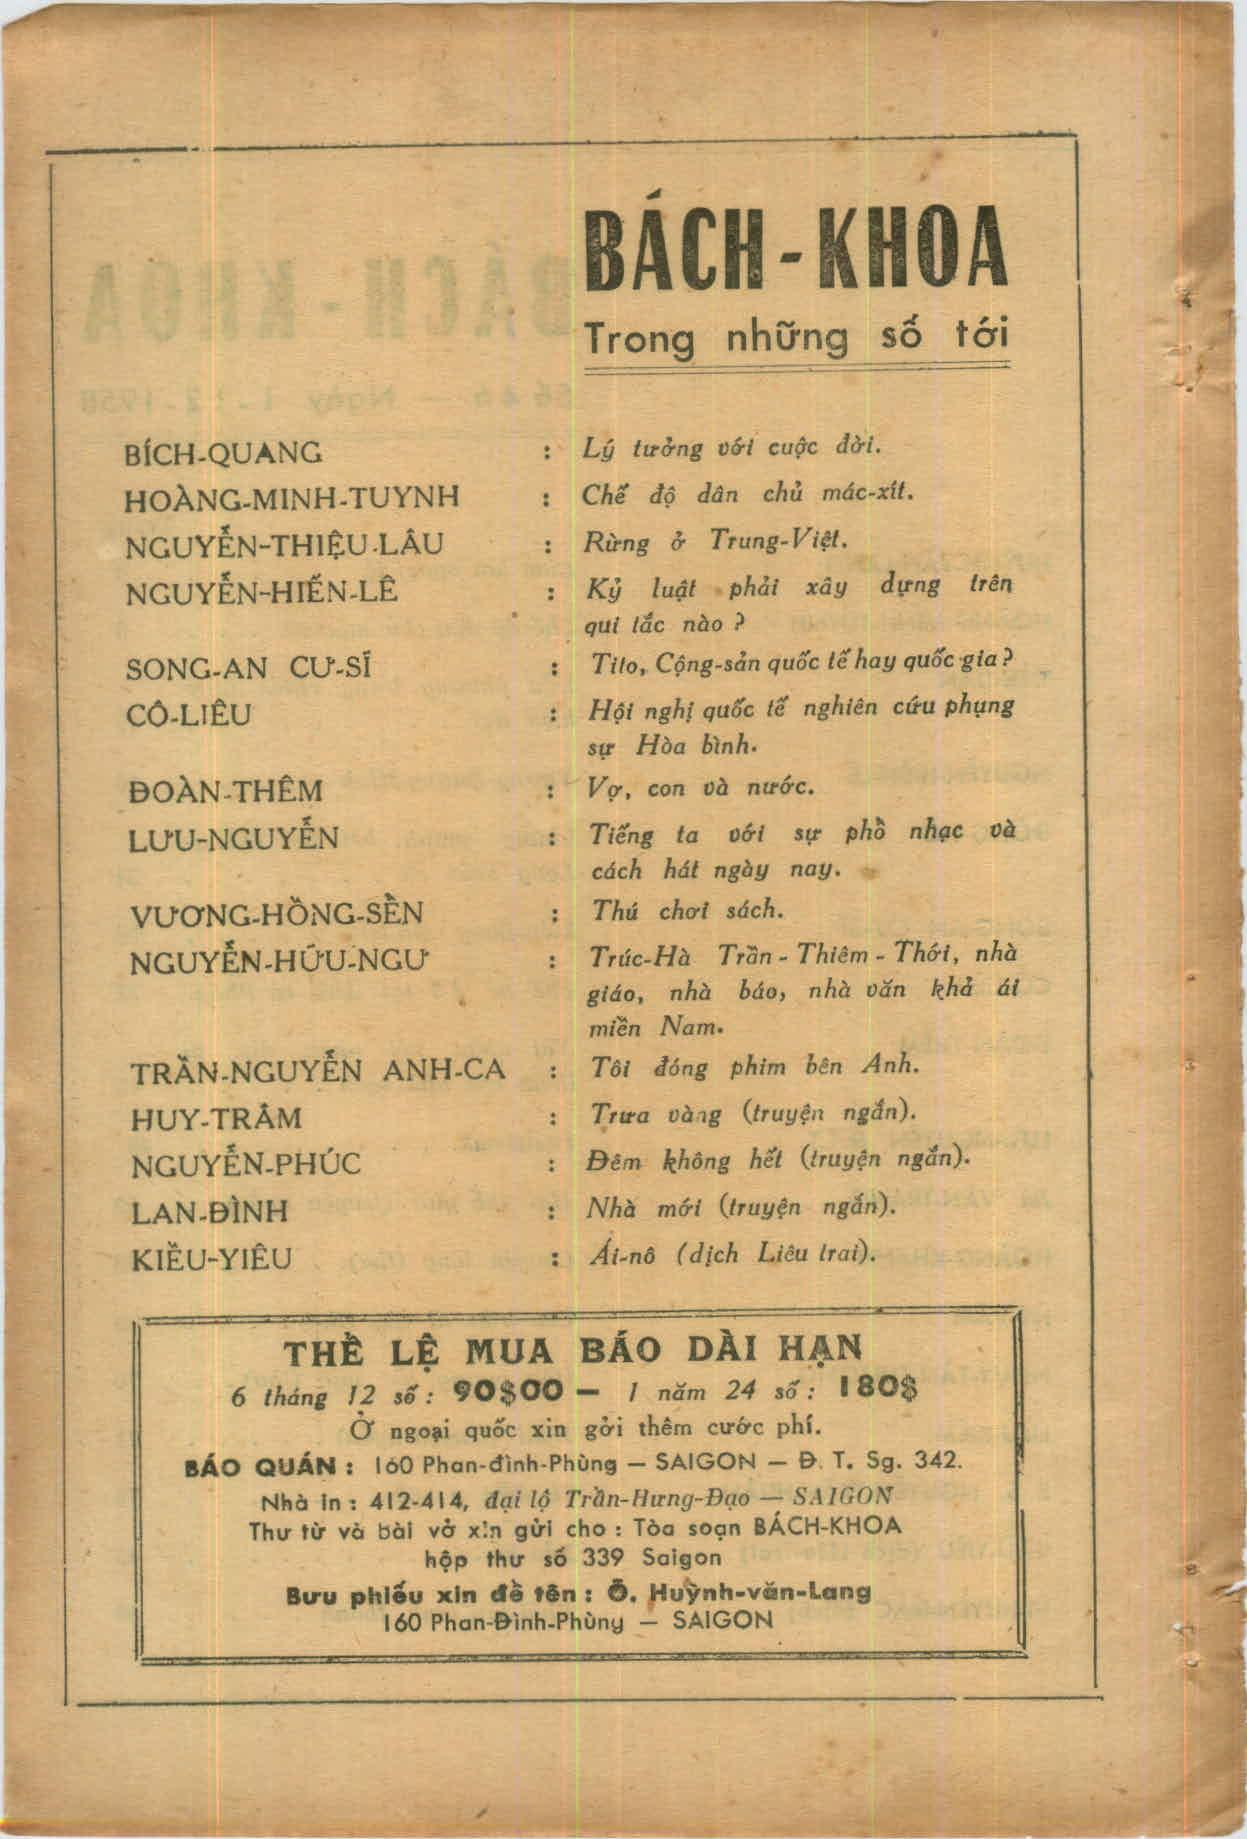 BÁCH-KHOA
Trong những số tới
BÍCH-QUANG : Lý tưởng với cuộc đời.
HOÀNG-MINH-TUYNH : Chế độ dân chủ mác-xít.
NGUYỄN-THIỆU-LÂU : Rừng ở Trung-Việt.
NGUYỄN-HIẾN-LÊ : Kỷ luật phải xây dựng trên
qui tắc nào ?
SONG-AN CƯ-SĨ : Tito, Cộng-sản quốc tế hay quốc gia ?
CÔ-LIÊU : Hội nghị quốc tế nghiên cứu phụng
sự Hòa bình.
ĐOÀN-THÊM : Vợ, con và nước.
LƯU-NGUYỄN : Tiếng ta với sự phổ nhạc và
cách hát ngày nay.
VƯƠNG-HỒNG-SỂN : Thú chơi sách.
NGUYỄN-HỮU-NGƯ : Trúc-Hà Trần - Thiêm - Thới, nhà
giáo, nhà báo, nhà văn khả ái
miền Nam.
TRẦN-NGUYỄN ANH-CA : Tôi đóng phim bên Anh.
HUY-TRÂM : Trưa vàng (truyện ngắn).
NGUYỄN-PHÚC : Đêm không hết (truyện ngắn).
LAN-ĐÌNH : Nhà mới (truyện ngắn).
KIỀU-YIÊU : Ái-nô (dịch Liêu trai).
THỂ LỆ MUA BÁO DÀI HẠN
6 tháng 12 số : 90$00 — 1 năm 24 số : 180$
Ở ngoại quốc xin gởi thêm cước phí.
BÁO QUÁN : 160 Phan-đình-Phùng — SAIGON — Đ. T. Sg. 342.
Nhà in : 412-414, đại lộ Trần-Hưng-Đạo — SAIGON
Thư từ và bài vở xin gửi cho : Tòa soạn BÁCH-KHOA
hộp thư số 339 Saigon
Bưu phiếu xin để tên : Ô. Huỳnh-văn-Lang
160 Phan-Đình-Phùng — SAIGON